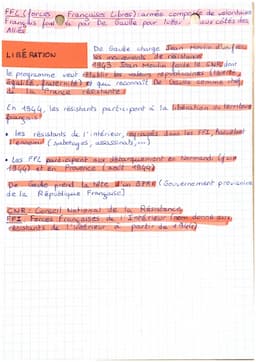 FFL (forces Françaises Libres) : armée composée de volontaires
Français fondée par De Gaulle pour lutter aux côtés des
Alliés
LIBÉRATION
De Gaulle charge Jean Moulin d'unifier
les mouvements de résistance
1943 : Jean Moulin fonde le CNR dont
le programme veut rétablir les valeurs républicaines (liberté,
égalité, fraternité) et qui reconnaît De Gaulle comme chef
de la France résistante.
En 1944, les résistants participent à la libération du territoire
français :
• les résistants de l'intérieur, regroupés dans les FFI, harcèlent
l'ennemi (sabotages, assassinats, ...)
• Les FFL participent aux débarquement en Normandie (juin
1944) et en Provence (août 1944)
De Gaulle prend la tête d'un GPRF (Gouvernement provisoire
de la République Française)
CNR : Conseil National de la Résistance
FFI : Forces Françaises de l'Intérieur (nom donné aux
résistants de l'intérieur à partir de 1944)